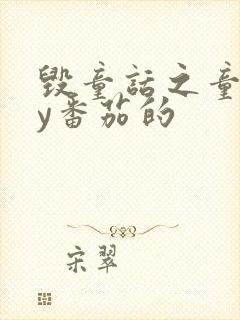 毁童话之童
y番茄的
宋翠